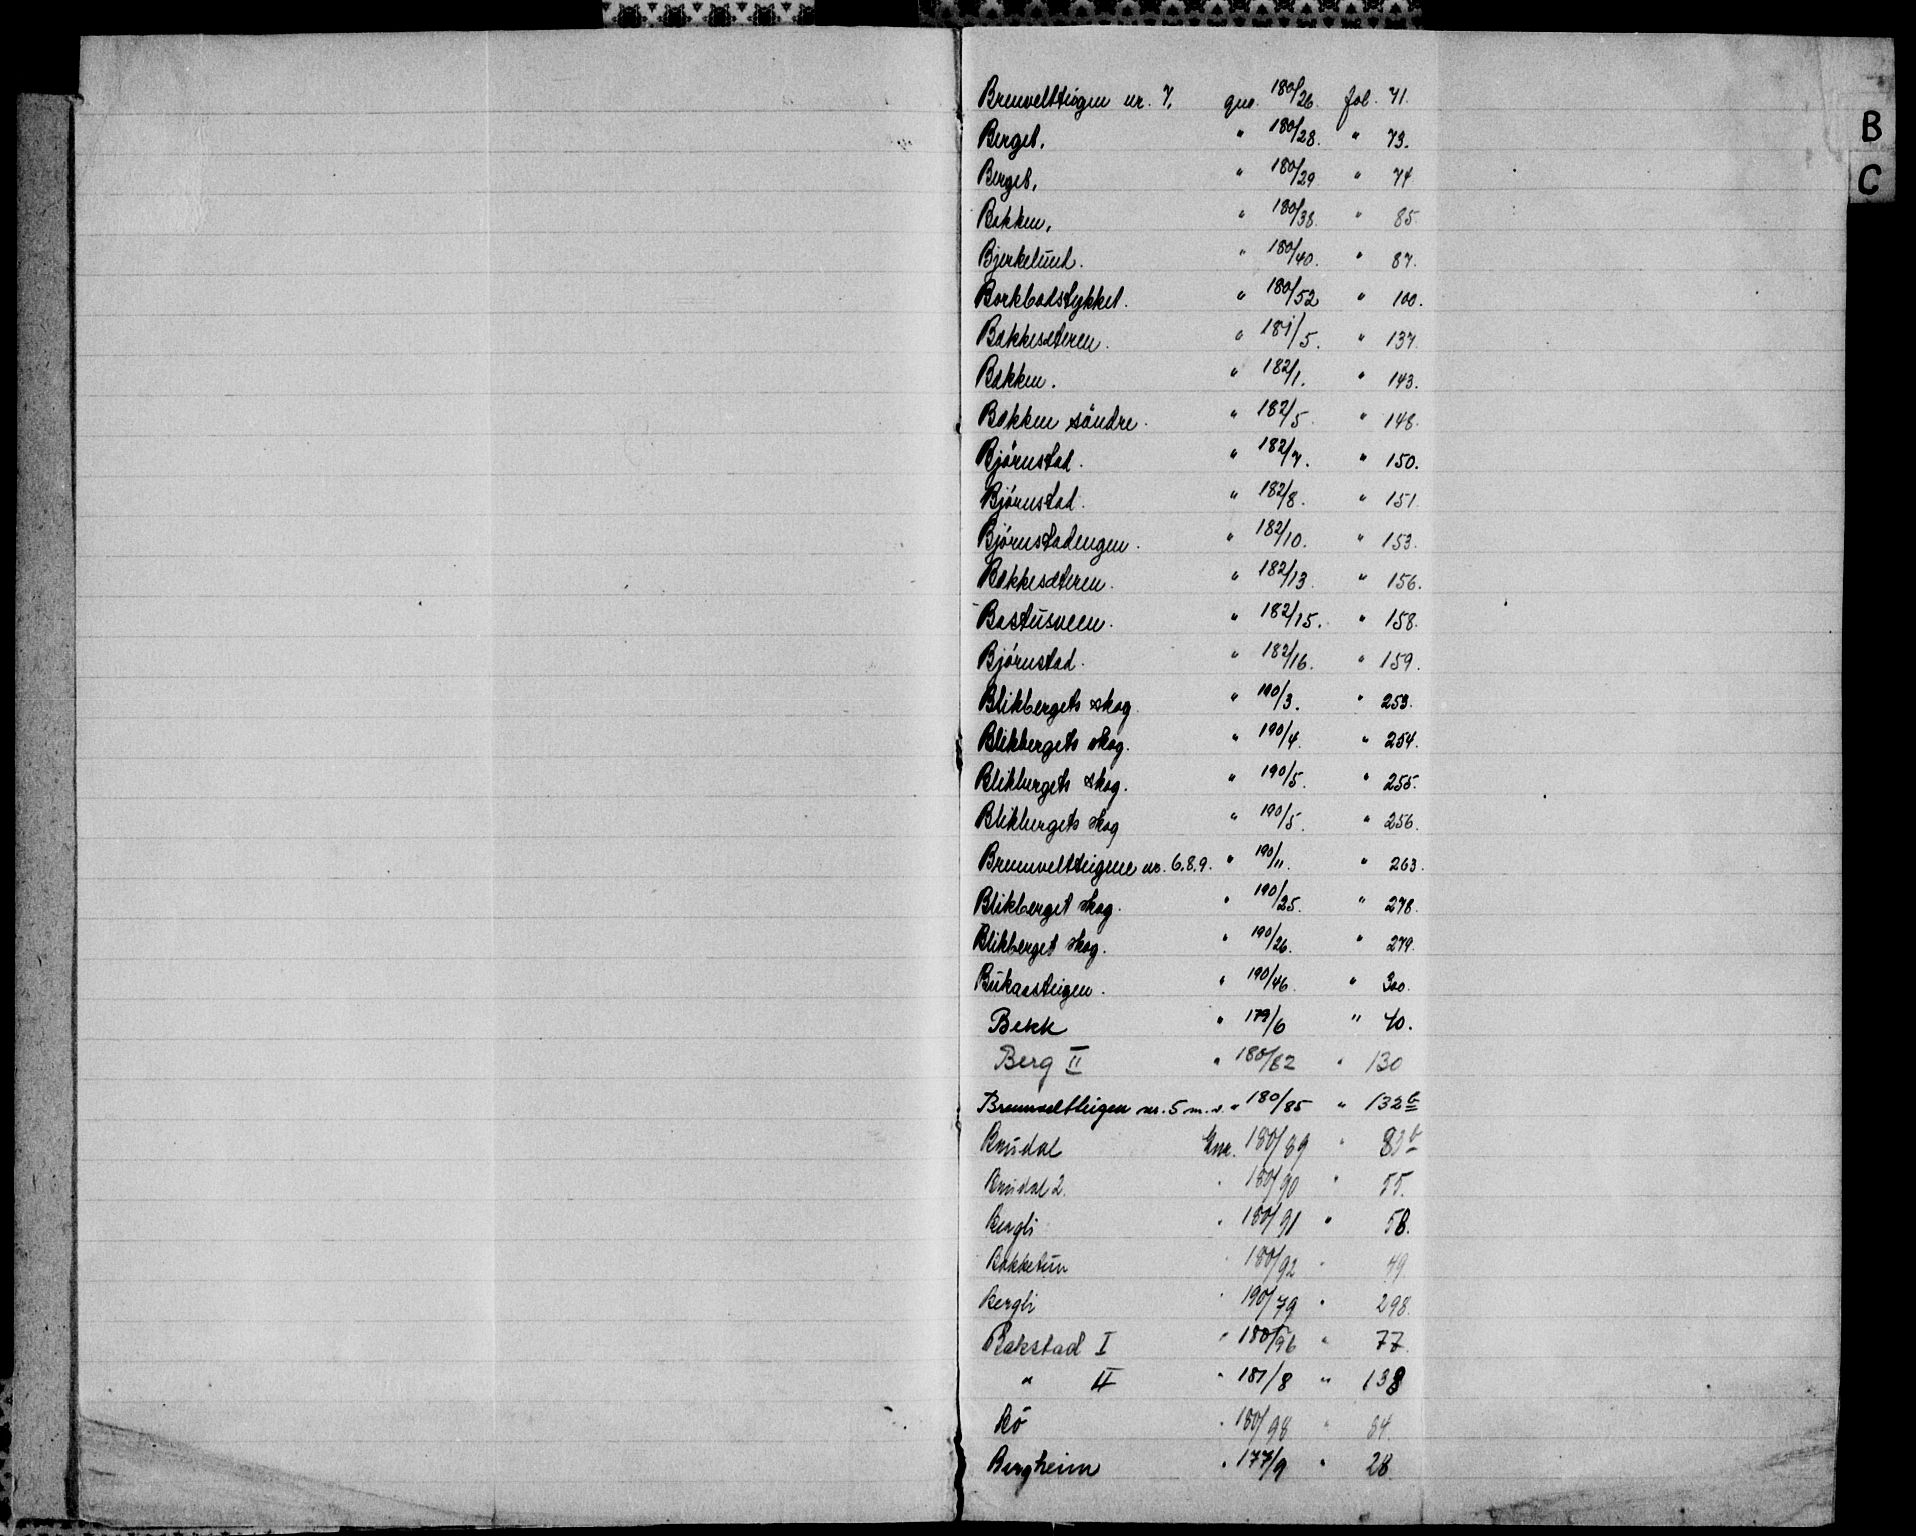 B
C
Brenvelttiegen nr. 7, gno. 180/26. fol. 71.
Berget, " 180/28. " 73.
Berget, " 180/29 " 74
Bakken, " 180/38. " 85.
Bjerkelund. " 180/40. " 87.
Borkbodstykket. " 180/52 " 100.
Bakkesæteren. " 181/5. " 137.
Bakken. " 182/1. " 143.
Bakken söndre. " 182/5. " 148.
Björnstad. " 182/7. " 150.
Björnstad. " 182/8. " 151
Björnstadengen. " 182/10. " 153.
Bakkesæteren. " 182/13. " 156.
Bastusveen. " 182/15. " 158.
Björnstad. " 182/16. " 159.
Blikbergets skog. " 190/3. " 253.
Blikbergets skog. " 190/4. " 254.
Blikbergets skog. " 190/5. " 255.
Blikbergets skog " 190/5. " 256.
Brennveltteigene nr. 6.8.9. " 190/11. " 263.
Blikberget skog. " 190/25. " 278.
Blikberget skog. " 190/26. " 279.
Bukaasteigen. " 190/46. " 300.
Bekk " 179/6 " 40.
Berg II " 180/82 " 130
Brennveltteigen nr. 5 m. v. " 180/85 " 132 b
Brudal Gnr. 180/89 " b
Brudal 2. " 180/90 " 55.
Bergli " 180/91 " 58.
Bakketun " 180/92 " 49.
Bergli " 190/79 " 298.
Bakstad I " 180/96 " 77.
" II " 181/8 " 138
Bö " 180/98 " 84.
Bergheim " 177/9 " 28.